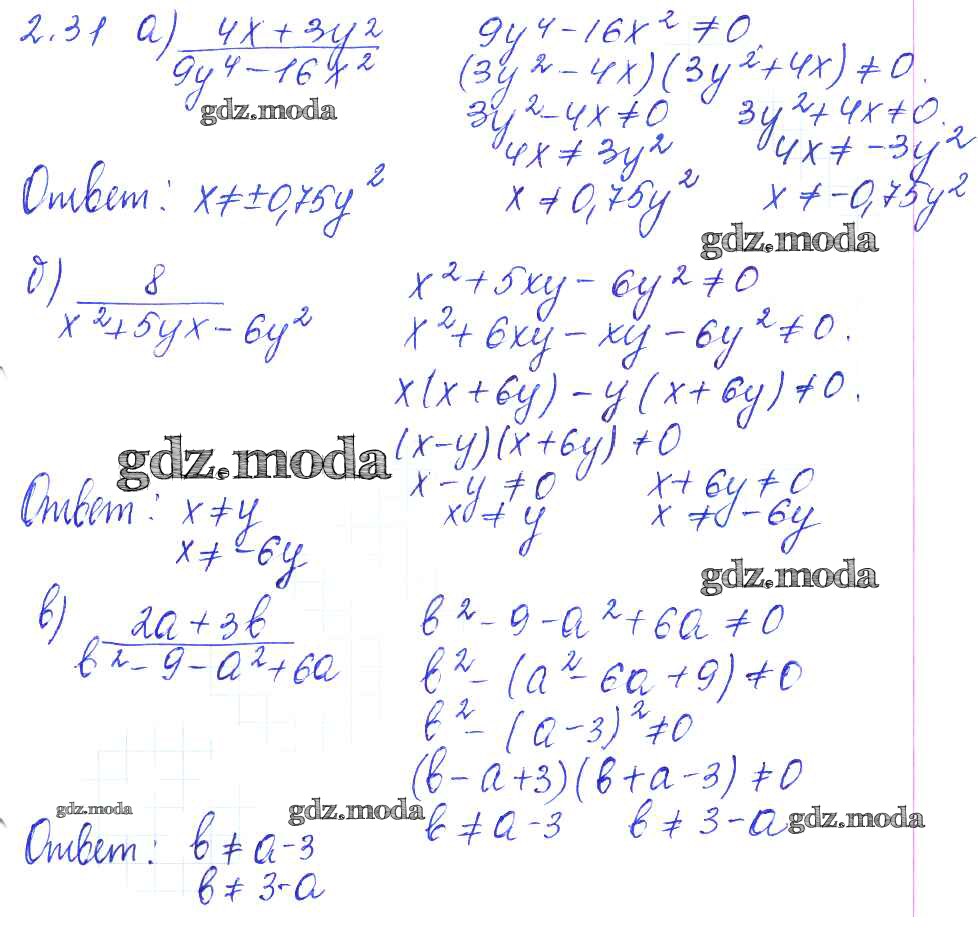 2.31 а) (4x + 3y²)/(9y⁴ − 16x²)    9y⁴ − 16x² ≠ 0
(3y² − 4x)(3y² + 4x) ≠ 0.
gdz.moda
3y² − 4x ≠ 0    3y² + 4x ≠ 0.
4x ≠ 3y²    4x ≠ −3y²
Ответ: x ≠ ±0,75y²    x ≠ 0,75y²    x ≠ −0,75y²
gdz.moda
б) 8/(x² + 5yx − 6y²)    x² + 5xy − 6y² ≠ 0
x² + 6xy − xy − 6y² ≠ 0.
x(x + 6y) − y(x + 6y) ≠ 0.
(x − y)(x + 6y) ≠ 0
gdz.moda
x − y ≠ 0    x + 6y ≠ 0
Ответ: x ≠ y    x ≠ y    x ≠ −6y
x ≠ −6y
gdz.moda
в) (2a + 3b)/(b² − 9 − a² + 6a)    b² − 9 − a² + 6a ≠ 0
b² − (a² − 6a + 9) ≠ 0
b² − (a − 3)² ≠ 0
(b − a + 3)(b + a − 3) ≠ 0
gdz.moda
gdz.moda
b ≠ a − 3    b ≠ 3 − a
gdz.moda
Ответ: b ≠ a − 3
b ≠ 3 − a